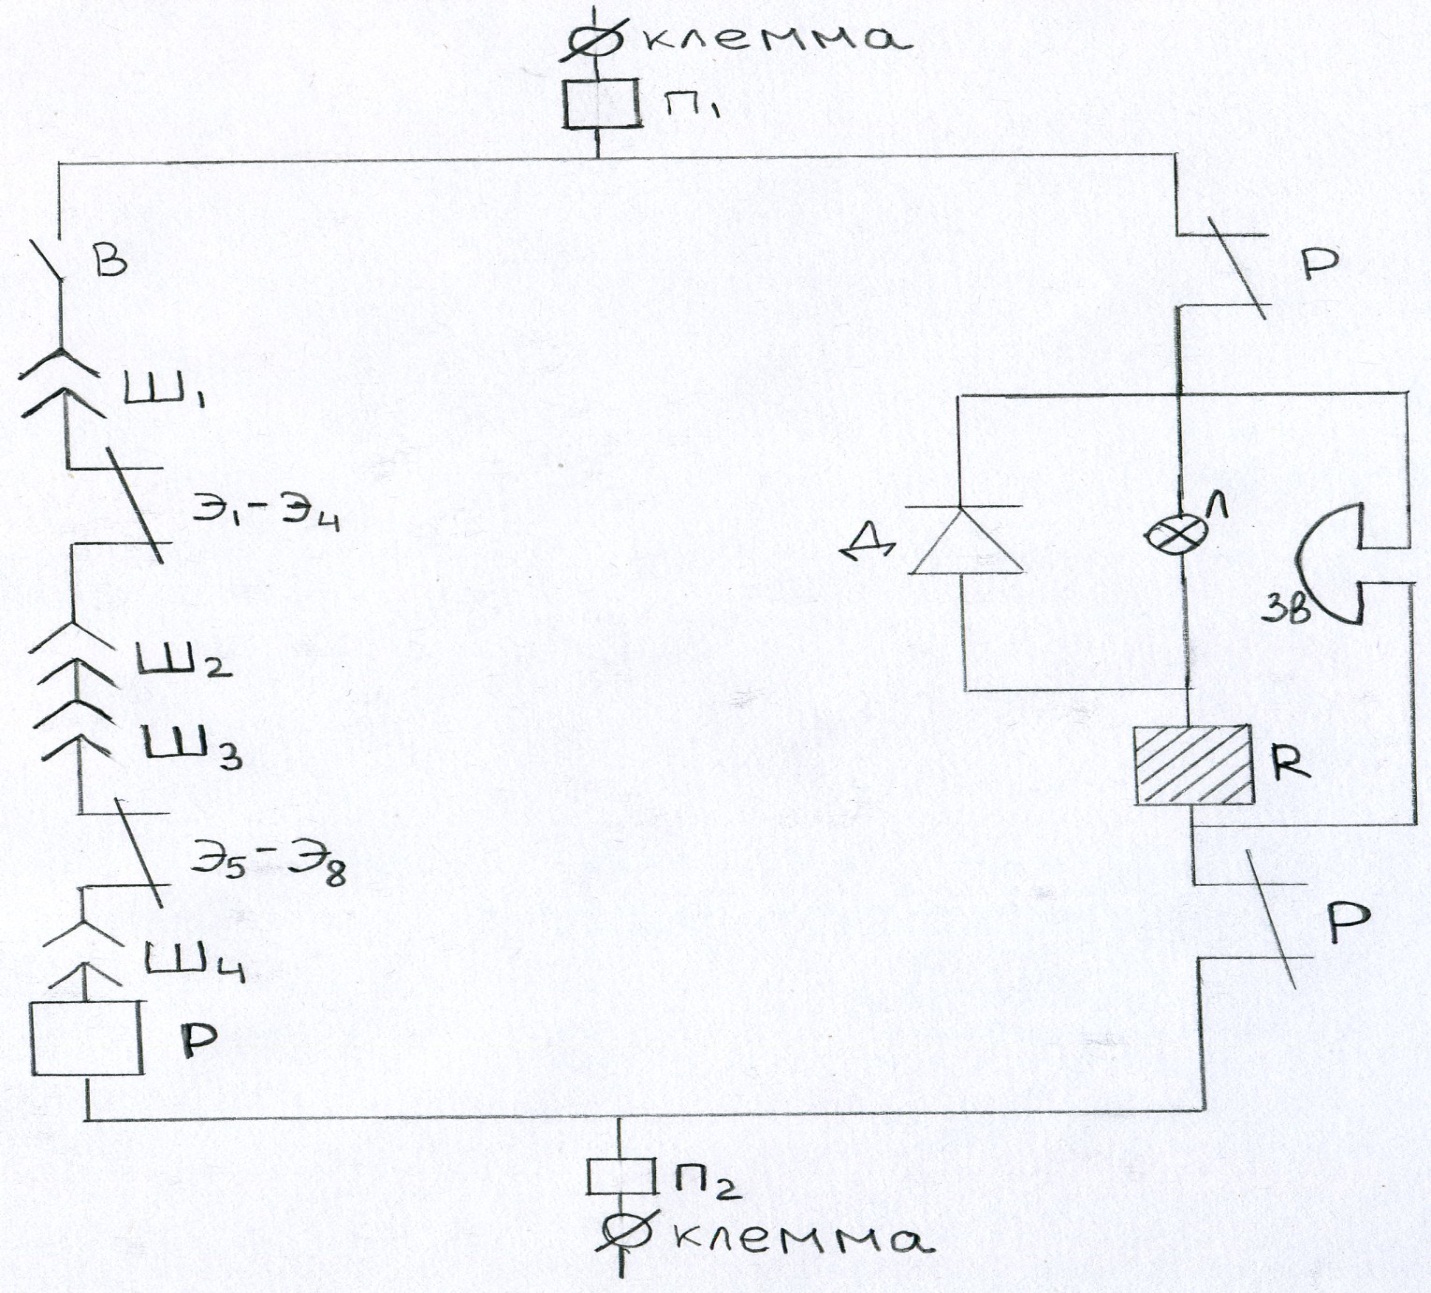 клемма
П₁
В
Р
Ш₁
Э₁-Э₄
Л
Д
Зв
Ш₂
Ш₃
R
Э₅-Э₈
Р
Ш₄
Р
П₂
клемма